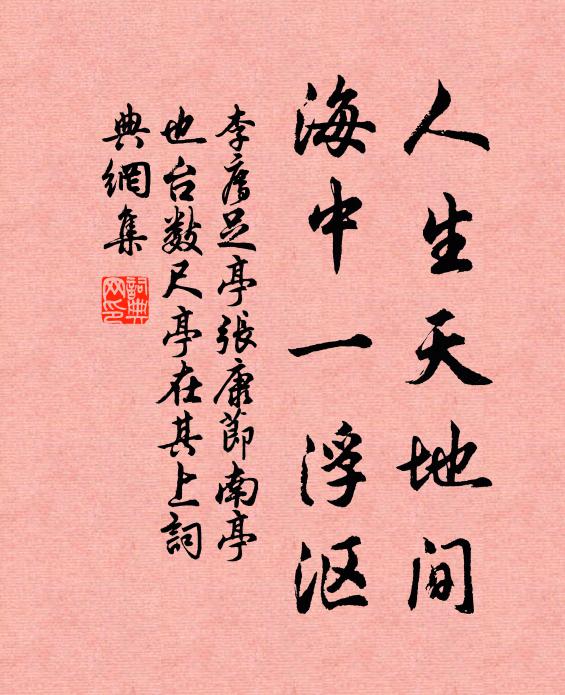 人生天地间
海中一浮沤
李廌足亭張康節南亭
也台数尺亭在其上詞
典網集
詞典网印